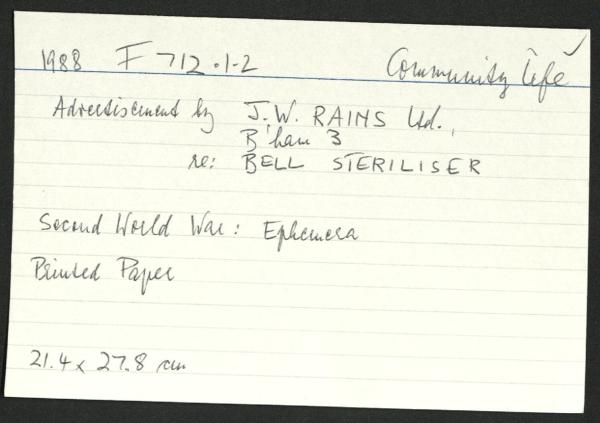 1988 F 712.1-2 Community life ✓
Advertisement by J.W. RAINS Ltd.,
B'ham 3
re: BELL STERILISER
Second World War: Ephemera
Printed Paper
21.4 x 27.8 cm